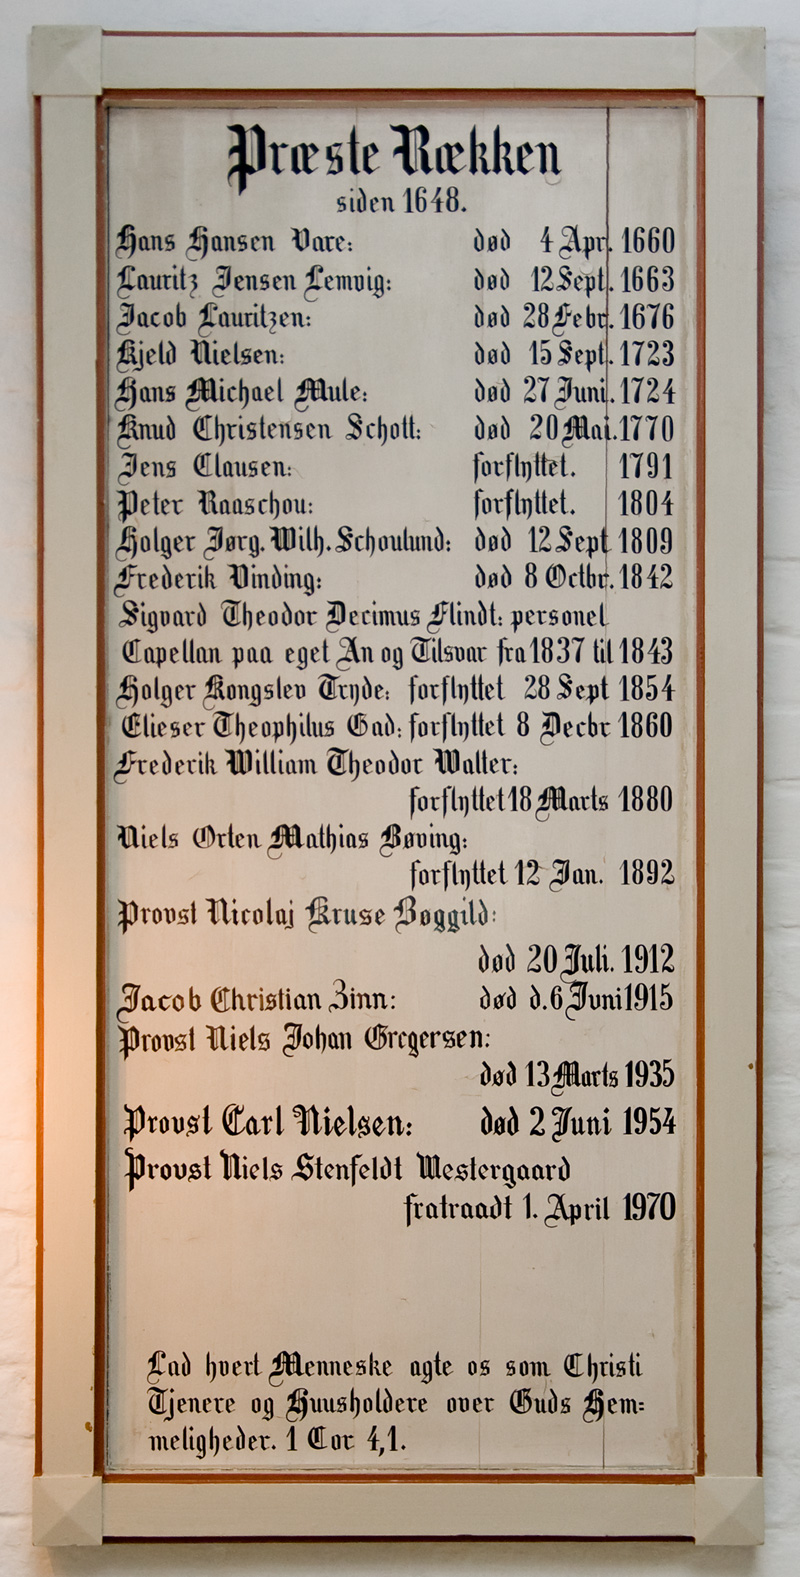 Præste Rækken
siden 1648.
Hans Hansen Vare: død 4 Apr. 1660
Lauritz Jensen Lemvig: død 12 Sept. 1663
Jacob Lauritzen: død 28 Febr. 1676
Kjeld Nielsen: død 15 Sept. 1723
Hans Michael Mule: død 27 Juni. 1724
Knud Christensen Schott: død 20 Mai. 1770
Jens Clausen: forflyttet. 1791
Peter Raaschou: forflyttet. 1804
Holger Jørg. Wilh. Schoulund: død 12 Sept 1809
Frederik Vinding: død 8 Octbr. 1842
Sigvard Theodor Decimus Flindt: personel
Capellan paa eget An og Tilsvar fra 1837 til 1843
Holger Kongslev Tryde: forflyttet 28 Sept 1854
Elieser Theophilus Gad: forflyttet 8 Decbr 1860
Frederik William Theodor Walter:
forflyttet 18 Marts 1880
Niels Orten Mathias Bøving:
forflyttet 12 Jan. 1892
Provst Nicolaj Kruse Bøggild:
død 20 Juli. 1912
Jacob Christian Zinn: død d. 6 Juni 1915
Provst Niels Johan Gregersen:
død 13 Marts 1935
Provst Carl Nielsen: død 2 Juni 1954
Provst Niels Stenfeldt Westergaard
fratraadt 1. April 1970
Lad hvert Menneske agte os som Christi
Tjenere og Huusholdere over Guds Hem=
meligheder. 1 Cor 4,1.